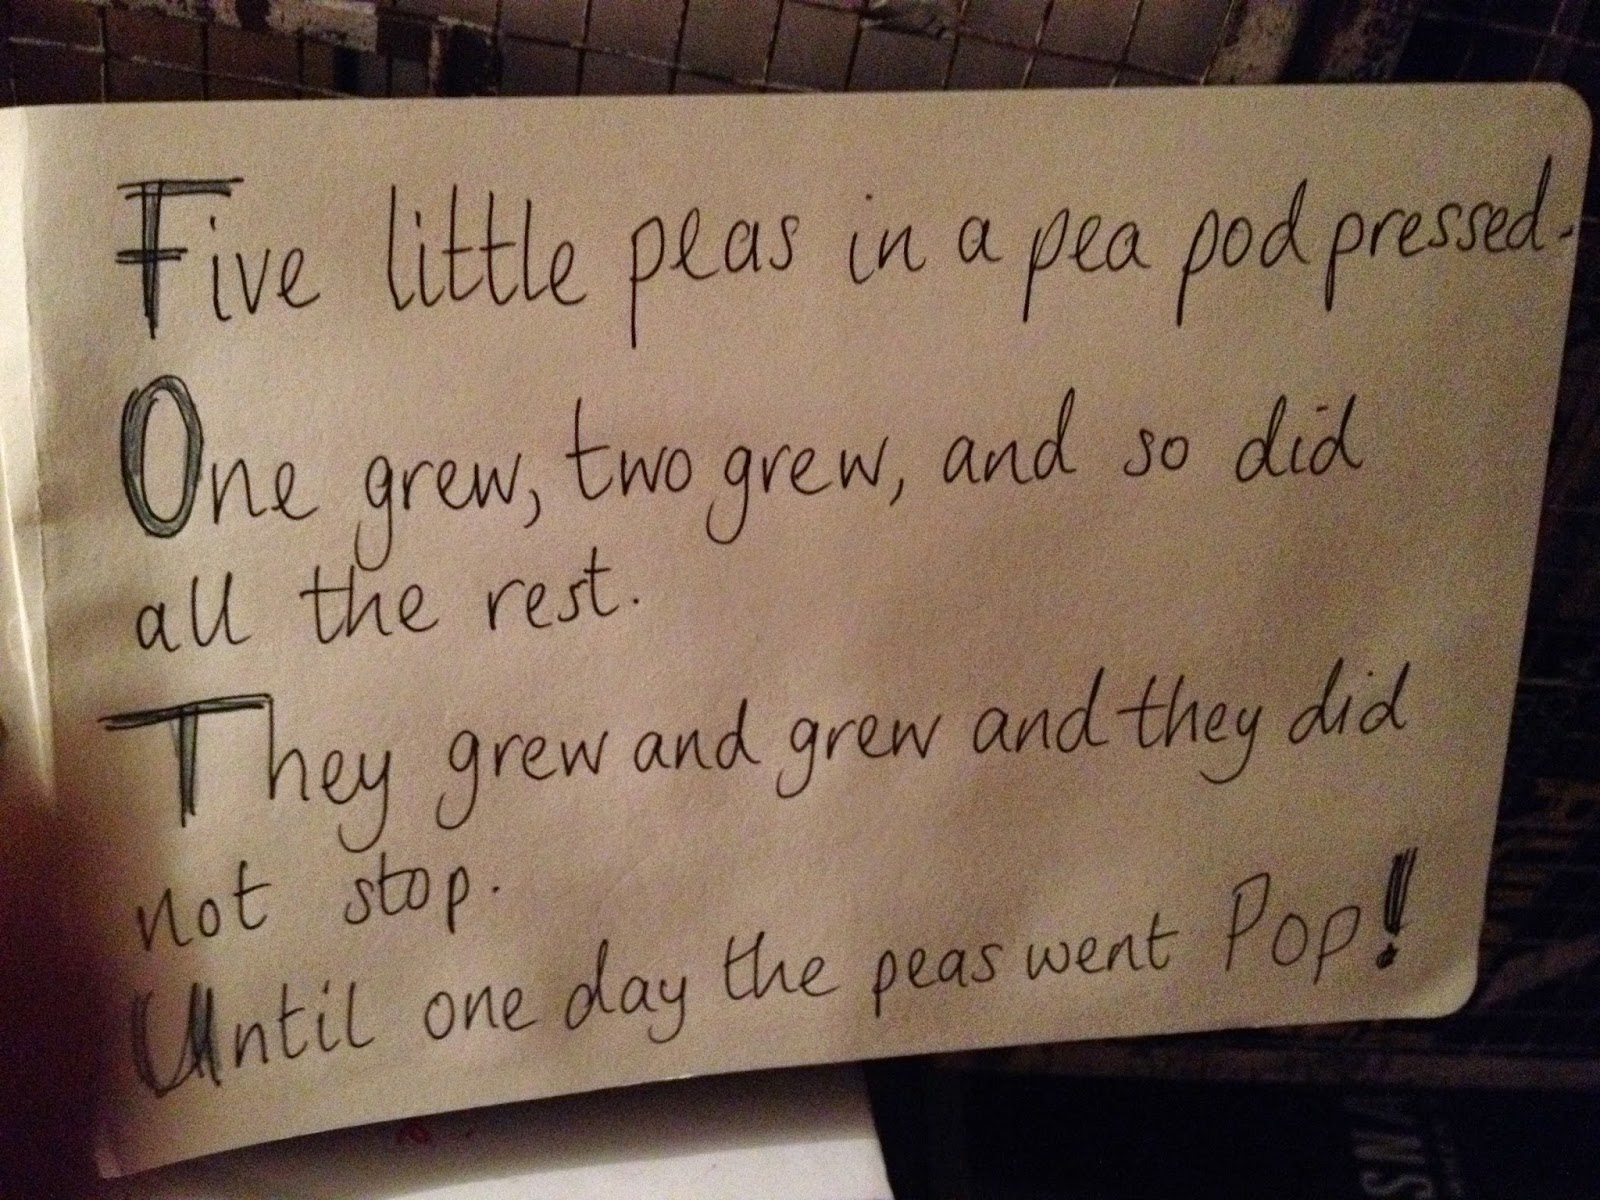 Five little peas in a pea pod pressed.
One grew, two grew, and so did
all the rest.
They grew and grew and they did
not stop.
Until one day the peas went Pop!